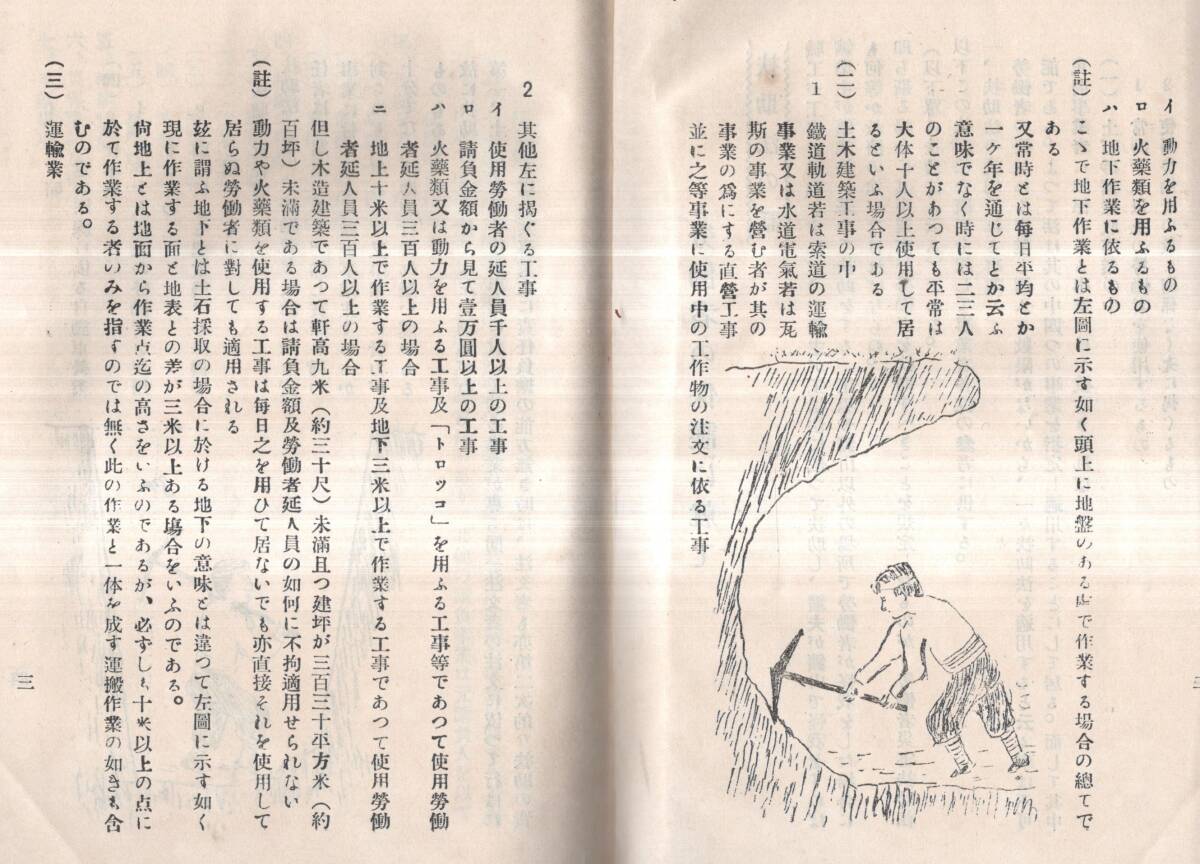 イ 動力を用ふるもの
ロ 火藥類を用ふるもの
ハ 地下作業に依るもの
(註) こゝで地下作業とは左圖に示す如く頭上に地盤のある處で作業する場合の總てで
ある
又常時とは毎日平均とか
一ケ年を通じてとか云ふ
意味でなく時には二三人
のことがあつても平常は
大体十人以上使用して居
るといふ場合である
(二) 土木建築工事の中
1 鐵道軌道若は索道の運輸
事業又は水道電氣若は瓦
斯の事業を營む者が其の
事業の爲にする直營工事
並に之等事業に使用中の工作物の注文に依る工事
2 其他左に揭ぐる工事
イ 使用勞働者の延人員千人以上の工事
ロ 請負金額から見て壹万圓以上の工事
ハ 火藥類又は動力を用ふる工事及「トロッコ」を用ふる工事等であつて使用勞働
者延人員三百人以上の場合
ニ 地上十米以上で作業する工事及地下三米以上で作業する工事であつて使用勞働
者延人員三百人以上の場合
但し木造建築であつて軒高九米(約三十尺)未滿且つ建坪が三百三十平方米(約
百坪)未滿である場合は請負金額及勞働者延人員の如何に不拘適用せられない
(註) 動力や火藥類を使用する工事は毎日之を用ひて居ないでも亦直接それを使用して
居らぬ勞働者に對しても適用される
玆に謂ふ地下とは土石採取の場合に於ける地下の意味とは違つて左圖に示す如く
現に作業する面と地表との差が三米以上ある場合をいふのである。
尙地上とは地面から作業点迄の高さをいふのであるが、必ずしも十米以上の点に
於て作業する者のみを指すのでは無く此の作業と一体を成す運搬作業の如きも含
むのである。
(三) 運輸業
三